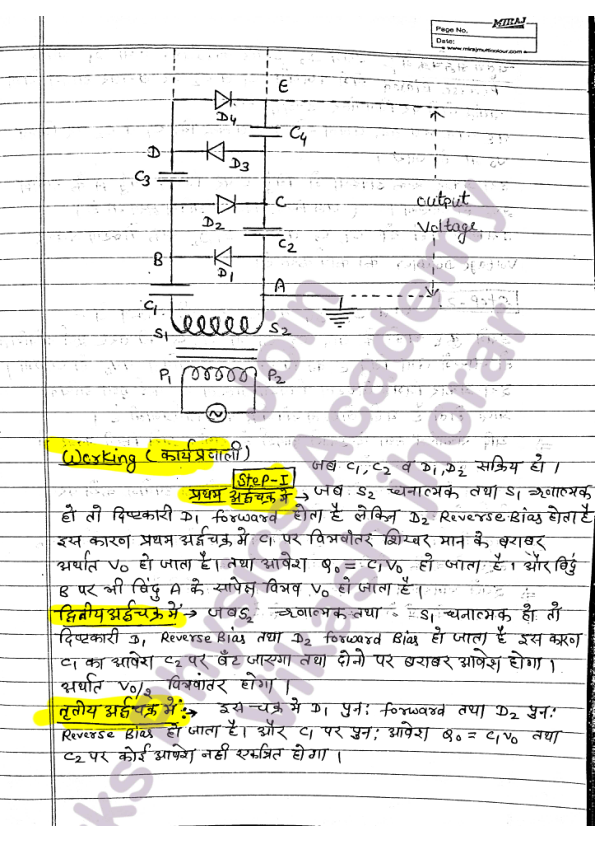 MIRAJ
Page No.
Date:
www.mirajmulticolour.com
E
D4
C4
D
D3
C3
C
D2
output
voltage
C2
B
D1
A
C1
S1
S2
P1
P2
Working (कार्यप्रणाली)
जब C1, C2 व D1, D2 सक्रिय हो ।
Step-I
प्रथम अर्द्धचक्र में → जब S2 धनात्मक तथा S1 ऋणात्मक
हो तो दिष्टकारी D1 forward होता है लेकिन D2 Reverse Bias होता है
इस कारण प्रथम अर्द्धचक्र में C1 पर विभवांतर शिखर मान के बराबर
अर्थात V0 हो जाता है। तथा आवेश Q0 = C1V0 हो जाता है । और बिंदु
B पर भी बिंदु A के सापेक्ष विभव V0 हो जाता है।
द्वितीय अर्द्धचक्र में → जब S2 ऋणात्मक तथा S1 धनात्मक हो तो
दिष्टकारी D1 Reverse Bias तथा D2 forward Bias हो जाता है इस कारण
C1 का आवेश C2 पर बँट जाएगा तथा दोनो पर बराबर आवेश होगा।
अर्थात V0/2 विभवांतर होगा ।
तृतीय अर्द्धचक्र में :→ इस चक्र में D1 पुन: forward तथा D2 पुन:
Reverse Bias हो जाता है। और C1 पर पुन: आवेश Q0 = C1V0 तथा
C2 पर कोई आवेश नही एकत्रित होगा ।
Join
Academy
Vikash jhorar